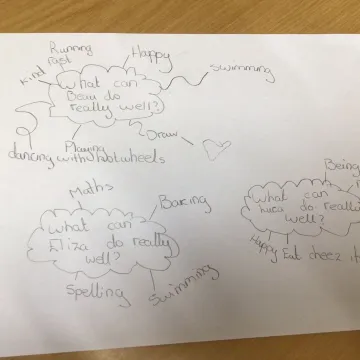 Running
fast
Happy
Kind
swimming
What can
Beau do
really well?
Draw
Playing
dancing with hotwheels
Maths
Baking
What can
Eliza do really
well?
Spelling
Swimming
Being
What can
luca do really
well?
Happy Eat cheez it